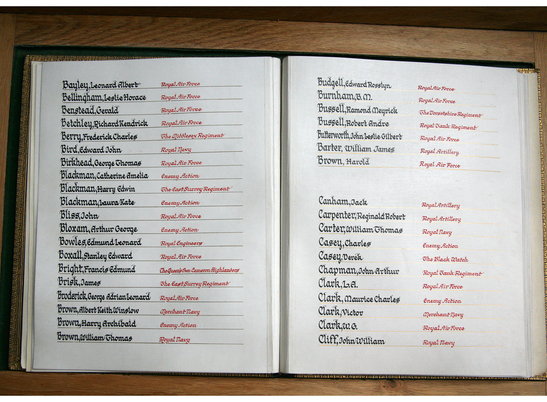 Bayley, Leonard Albert Royal Air Force
Bellingham, Leslie Horace Royal Air Force
Benstead, Gerald Royal Air Force
Betchley, Richard Kendrick Royal Air Force
Berry, Frederick Charles The Wiltshire Regiment
Bird, Edward John Royal Navy
Birkhead, George Thomas Royal Air Force
Blackman, Catherine Amelia Enemy Action
Blackman, Harry Edwin The East Surrey Regiment
Blackman, Laura Kate Enemy Action
Bliss, John Royal Air Force
Bloxam, Arthur George Enemy Action
Bowles, Edmund Leonard Royal Engineers
Boxall, Stanley Edward Royal Air Force
Bright, Francis Edmund The Queen's Own Cameron Highlanders
Brisk, James The East Surrey Regiment
Broderick, George Adrian Leonard Royal Air Force
Brown, Albert Keith Winslow Merchant Navy
Brown, Harry Archibald Enemy Action
Brown, William Thomas Royal Navy
Budgell, Edward Rosslyn Royal Air Force
Burnham, B.M. Royal Air Force
Bussell, Ramond Meyrick The Dorsetshire Regiment
Bussell, Robert Andre Royal Tank Regiment
Butterworth, John Leslie Gilbert Royal Air Force
Barter, William James Royal Artillery
Brown, Harold Royal Air Force
Canham, Jack Royal Artillery
Carpenter, Reginald Robert Royal Artillery
Carter, William Thomas Royal Navy
Casey, Charles Enemy Action
Casey, Derek The Black Watch
Chapman, John Arthur Royal Tank Regiment
Clark, L.A. Royal Air Force
Clark, Maurice Charles Enemy Action
Clark, Victor Merchant Navy
Clark, W.G. Royal Air Force
Cliff, John William Royal Navy